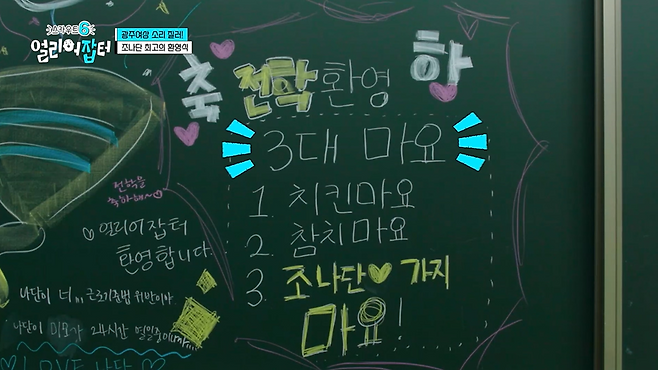 스카우트6
얼리어잡터
광주여상 소리 질러!
조나단 최고의 환영식
축 전학 환영 하
3대 마요
1. 치킨마요
2. 참치마요
3. 조나단♥ 가지
마요!
전학을
축하해~
♡얼리어잡터
환영합니다.
나단이 너,,, 근로기준법 위반이야.
나단이 미모가 24시간 열일중이니까...
♡LOVE 나단♡